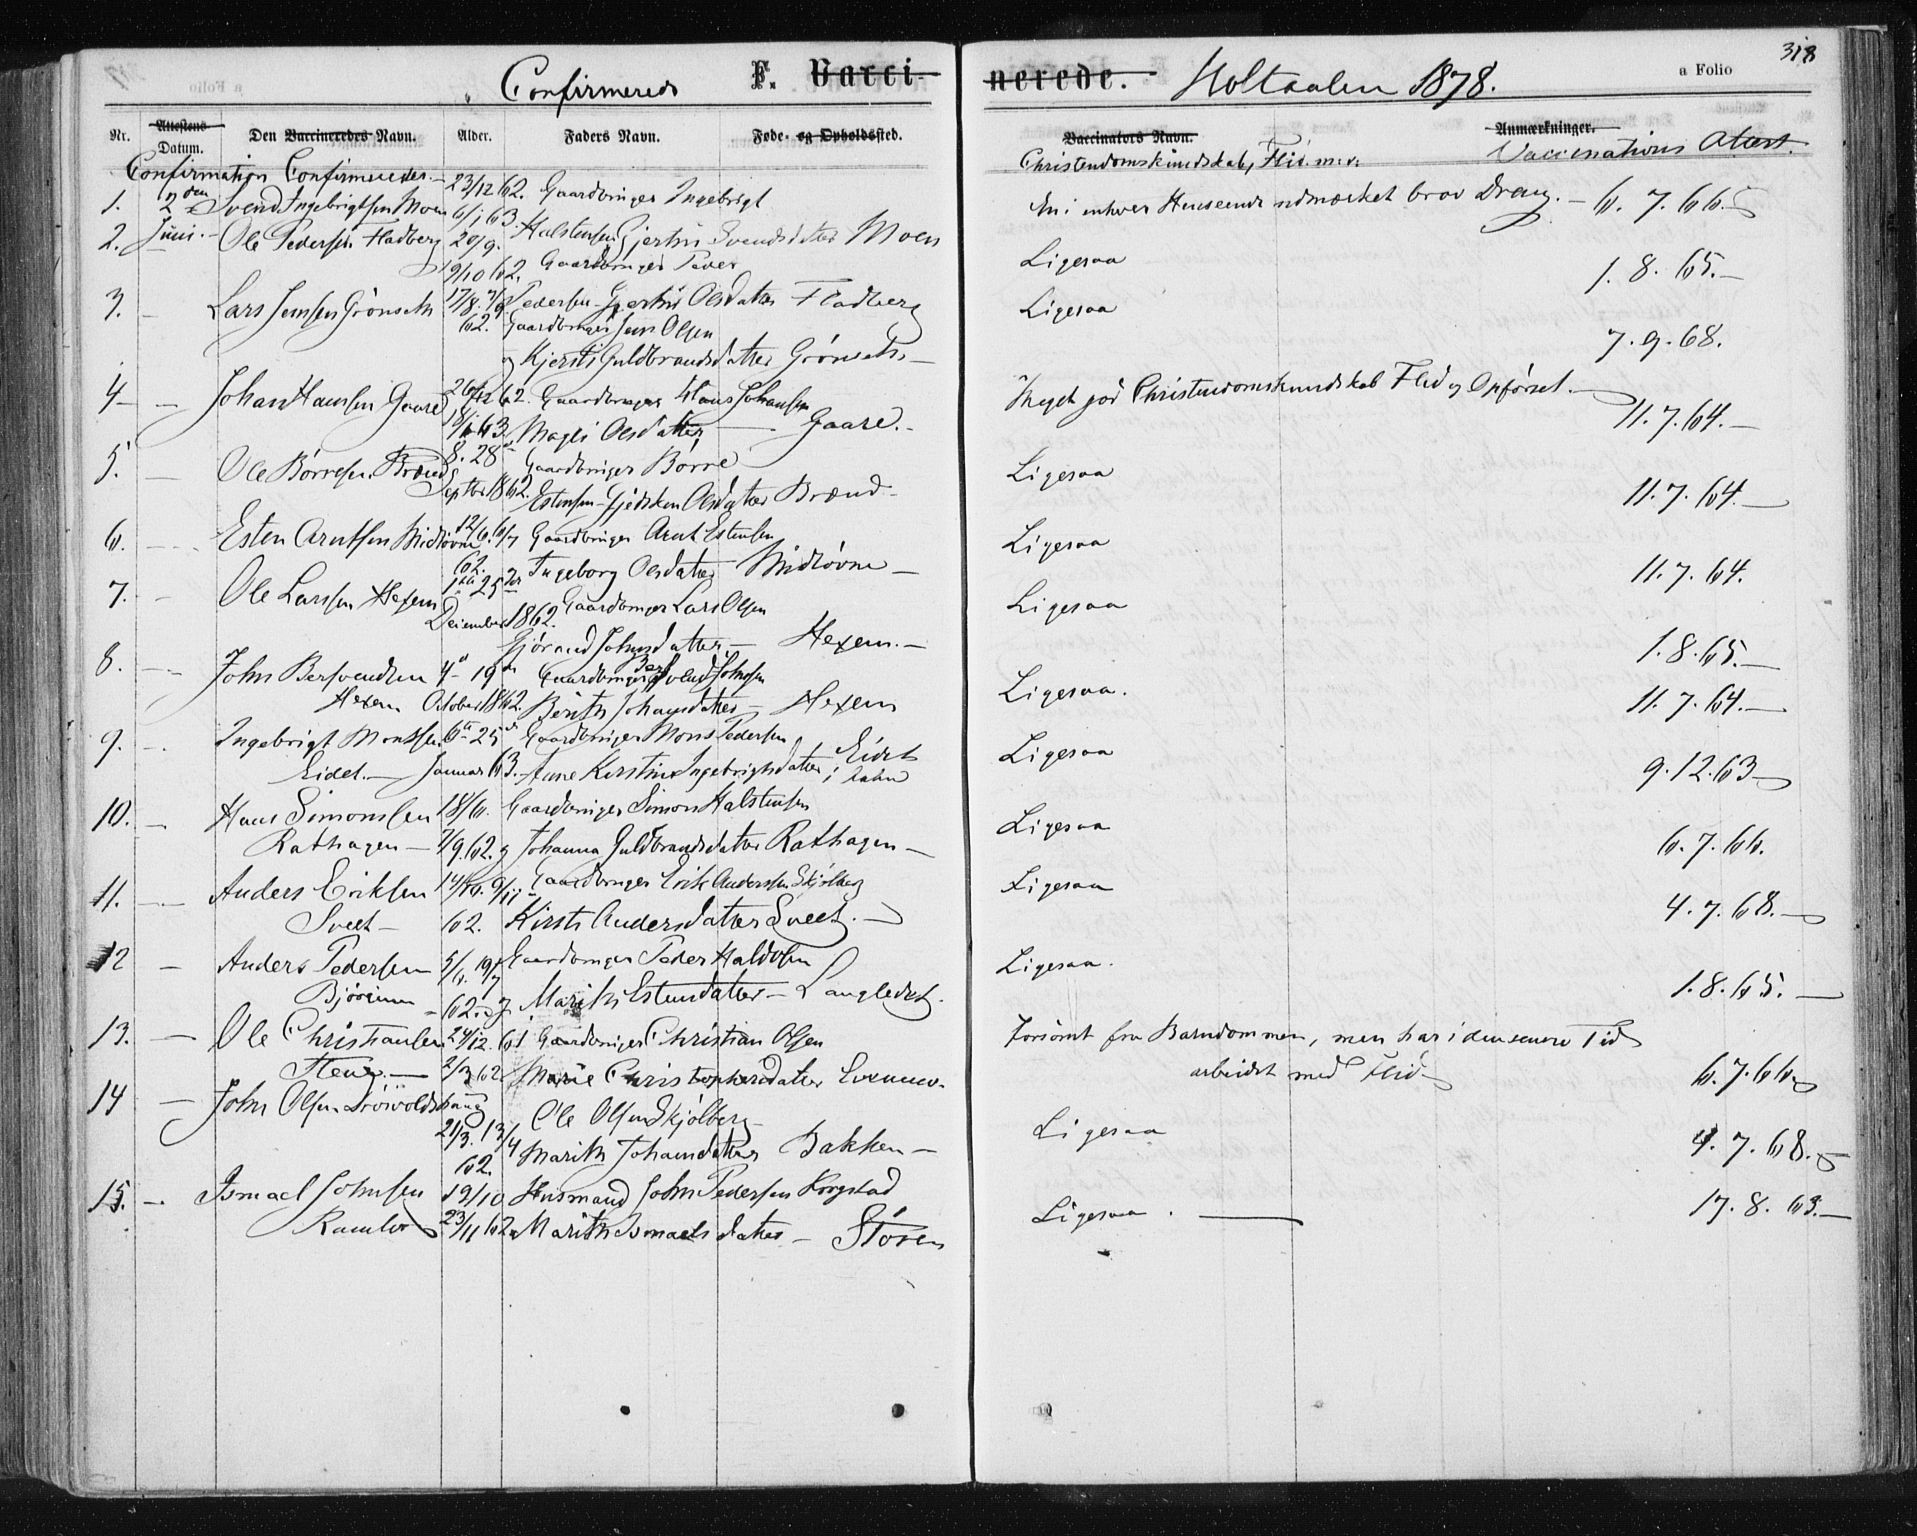 Confirmerede F. Vacci-
nerede. Holtaalen 1878. a Folio 318
Nr. Attestens Datum. Den Vaccineredes Navn. Alder. Faders Navn. Føde- og Opholdssted.
Vaccinators Navn. Anmærkninger.
Christendomskundskab, Flid m.v. Vaccinations Attest.
Confirmation Confirmereder.
1. 2den Svend Ingebrigtsen Moen 23/12 62. Gaardbruger Ingebrigt
En i enhver Henseende udmærket brav Dreng. — 6. 7. 66.
6/1 63. Halstensen Gjertru Svendsdatter Moen
2. Juni. — Ole Pedersen Fladberg 20/9. Gaardbruger Peder
Ligesaa 1. 8. 65. —
19/10 62. Pedersen Gjertru Olsdatter Fladberg
3. — Lars Jensen Grönseth 17/8. 7/9 62. Gaardbruger Jens Olsen
Ligesaa 7. 9. 68.
og Kjersti Guldbrandsdatter Grönseth —
4 — — Johan Hansen Gaare 26/12 62. Gaardbruger Hans Johansen
Meget god Christendomskundskab Flid og Opførsel. — 11. 7. 64. —
18/1 63 Magli Olsdatter — Gaare. —
5. — Ole Börresen Brænd 8. 28de Gaardbruger Börre
Ligesaa 11. 7. 64. —
Septbr 1862. Estensen Gjedsken Olsdatter Brænd —
6. — Esten Arntsen Midtövne 12/6. 6/7 Gaardbruger Arnt Estensen
Ligesaa 11. 7. 64.
62. Ingeborg Olsdatter Midtövne —
7. — Ole Larsen Hexem 25de Gaardbruger Lars Olsen
Ligesaa 1. 8. 65. —
December 1862. Gjörand Johnsdatter — Hexem. —
8. — John Bersvendsen 4de 19de Gaardbruger Bersvend Johnsen
Ligesaa. 11. 7. 64. —
Hexem October 1862. Berith Johansdatter — Hexem
9. — Ingebrigt Monssen 6te 25de Gaardbruger Mons Pedersen
Ligesaa 9. 12. 63 —
Eidet. — Januar 63. Anne Kirstine Ingebrigtsdatter Eidet i
10. — Hans Simonsen 18/6. Gaardbruger Simon Halstensen
Ligesaa 6. 7. 66.
Rathagen — 7/9. 62. og Johanna Guldbrandsdatter Rathagen —
11. — Anders Eriksen 14/10. 9/11 Gaardbruger Erik Andersen Skjölberg
Ligesaa 4. 7. 68. —
Sveet — 62. Kirsti Andersdatter Sveet. —
12 — Anders Pedersen 5/6. 19/7 Gaardbruger Peder Haldosen
Ligesaa. 1. 8. 65. —
62. og Marith Estensdatter — Langledet.
13. — Ole Christiansen 24/12. 61 Gaardbruger Christian Olsen
Forsömt fra Barndommen, men har i den senere Tid
Stene — 2/3 62. Marie Christophersdatter
arbeidet med Flid 6. 7. 66.
14 — John Olsen Drövoldshaug Ole Olsen Skjölberg
Ligesaa 4. 7. 68. —
21/3. 13/4 62. Marith Johansdatter Bakken —
15. — Ismael Johnsen 19/10 Husmand John Pedersen Korgstad
Ligesaa. — 17. 8. 63. —
Ramlo 23/11 62 Marith Ismaelsdatter — Stören